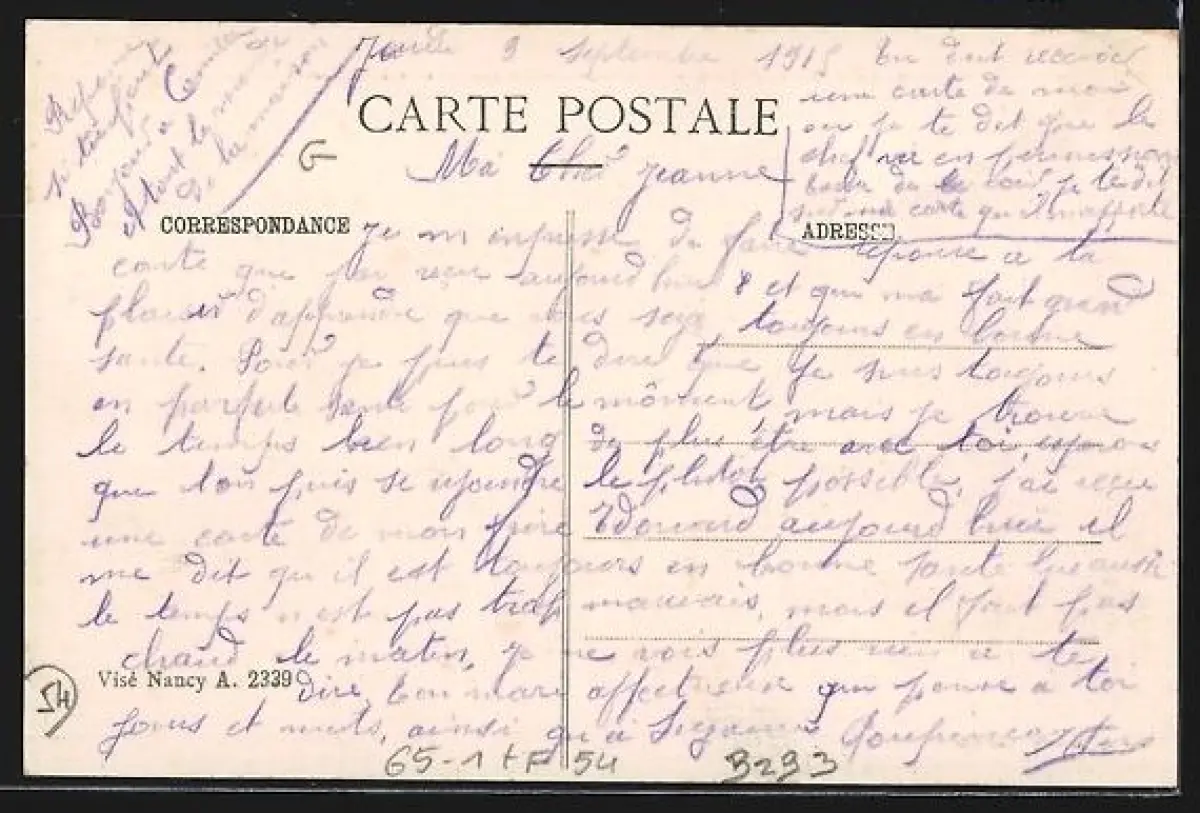 Jeudi 9 septembre 1915
Réponse
si tu peux
Bonjour à
et tout le monde
de la maison
CARTE POSTALE
G
Ma Cher Jeanne
Tu doit recevoir
une carte de moi
ou je te dit que le
chef va en permission
carte qu'il m'apporte
CORRESPONDANCE
ADRESSE
Je m'empresse de faire réponse a ta
carte que j'ai reçue aujourd'hui et qui ma fait grand
plaisir d'apprendre que vous soyé toujours en bonne
santé. Pour je puis te dire que je suis toujours
en parfaite santé pour le môment mais je trouve
le temps bien long de plus être avec toi, espérons
que l'on puis se rejoindre le plutot possible, j'ai reçu
une carte de mon frère Edouard aujourd'hui il
me dit qu'il est toujours en bonne santé lui aussi
le temps n'est pas trop mauvais, mais il fait pas
chaud le matin, je ne vois plus rien a te
Visé Nancy A. 2339
dire, ton mari affectueux qui pense à toi
jours et nuits, ainsi qu'à Suzanne
54
65-1 + F 54
3293